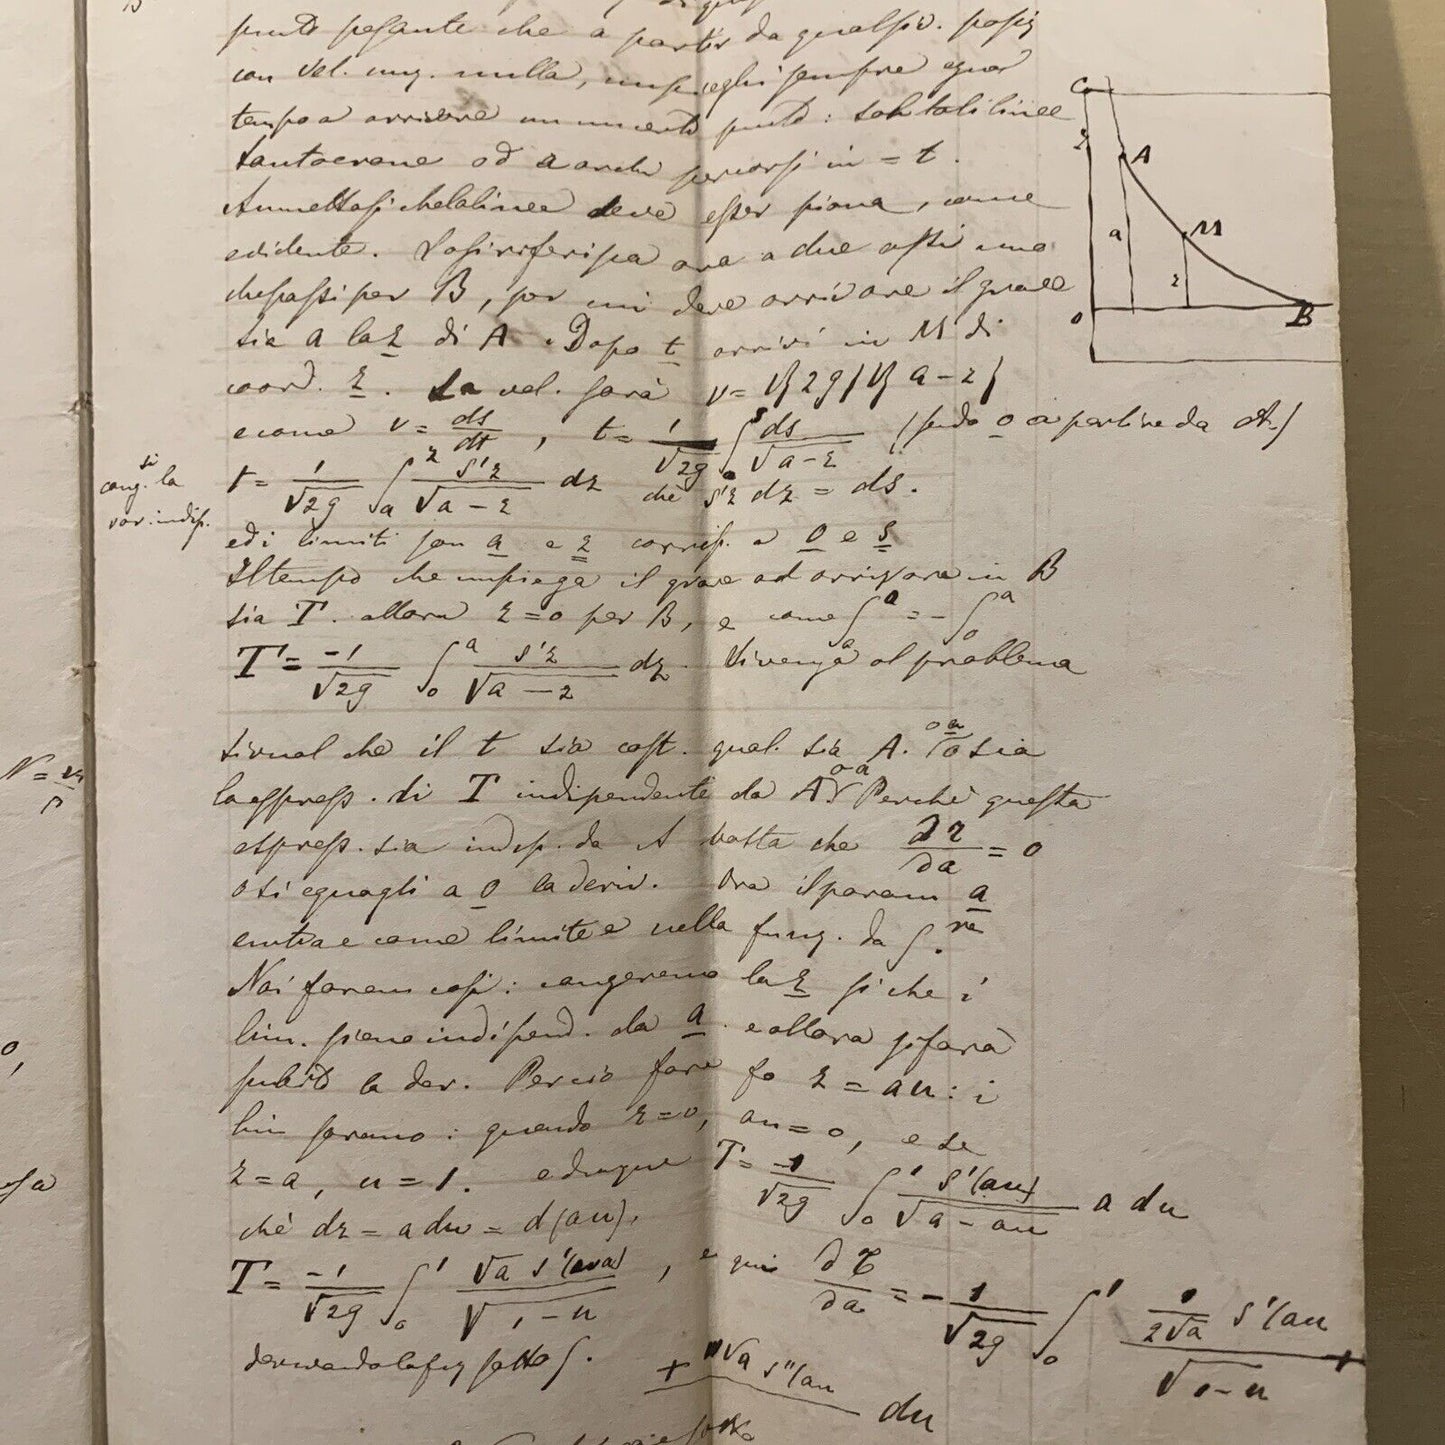 punto pesante che a partir da qualsiv. posiz
con vel. inz. nulla, impieghi sempre egual
tempo a arrivare in un certo punto: tali linee
tautocrone od a archi percorsi in = t.
Ammettasi che la linea deve esser piana, come
evidente. riferisca ora a due assi uno
che passi per B, per cui deve arrivare il grave
sia a la z di A. Dopo t arrivi in M di
coord. z. La vel. sarà v = √{2g} √{a-z}
e come v = ds/dt, t = 1/√2g ∫₀ˢ ds/√a-z (sendo o a partire da A)
t = 1/√2g ∫ₐᶻ s'z/√a-z dz chè s'z dz = ds.
si
cang. la
var. indip.
ed i limiti son a e z corrisp. a 0 e s
Il tempo che impiega il grave ad arrivare in B
sia T. allora z=0 per B, e come ∫ = -∫₀ᵃ
T = -1/√2g ∫₀ᵃ s'z/√a-z dz. divenga al problema
N =
si vuol che il t sia cost. qual. sia A. o a o sia
la espress. di T indipendente da A. o a Perchè questa
espress. sia indip. da A basta che ∂T/∂a = 0
o si eguagli a 0 la deriv. Ora il param a
entra e come limite e nella funz. da ∫.re
Noi farem così: cangeremo la z sì che i
lim. sieno indipend. da a e allora si farà
0,
subito la der. Perciò fo z = au: i
lim saranno: quando z=0, au=0, e se
z=a, u=1. e dunque T = -1/√2g ∫₀¹ s'(au)/√a-au a du
chè dz = a du = d(au).
T = -1/√2g ∫₀¹ √a s'(ua)/√1-u, e qui ∂T/∂a = -1/√2g ∫₀¹ 1/2√a s'(au
√1-u
derivando la fz sotto ∫. + u√a s''(au du
C
z
A
a
M
z
O
B